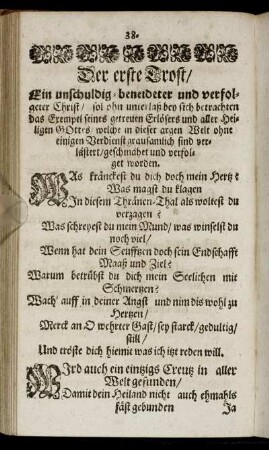 38.
Der erste Trost/
Ein unschuldig-beneideter und verfol-
geter Christ/ sol ohn unterlaß bey sich betrachten
das Exempel seines getreuen Erlösers und aller Hei-
ligen GOttes welche in dieser argen Welt ohne
einigen Verdienst grausamlich sind ver-
lästert/geschmähet und verfol-
get worden.
WAs kränckest du dich doch mein Hertz?
Was magst du klagen
In diesem Thränen-Thal als woltest du
verzagen?
Was schreyest du mein Mund/ was winselst du
noch viel/
Wenn hat dein Seufftzen doch sein Endschafft
Maaß und Ziel?
Warum betrübst du dich mein Seelichen mit
Schmertzen?
Wach' auff in deiner Angst und nim dis wohl zu
Hertzen/
Merck an O wehrter Gast/ sey starck/gedultig/
still/
Und tröste dich hiemit was ich itzt reden will.
WIrd auch ein eintzigs Creutz in aller
Welt gefunden/
Damit dein Heiland nicht auch ehmahls
fäst gebunden
Ja